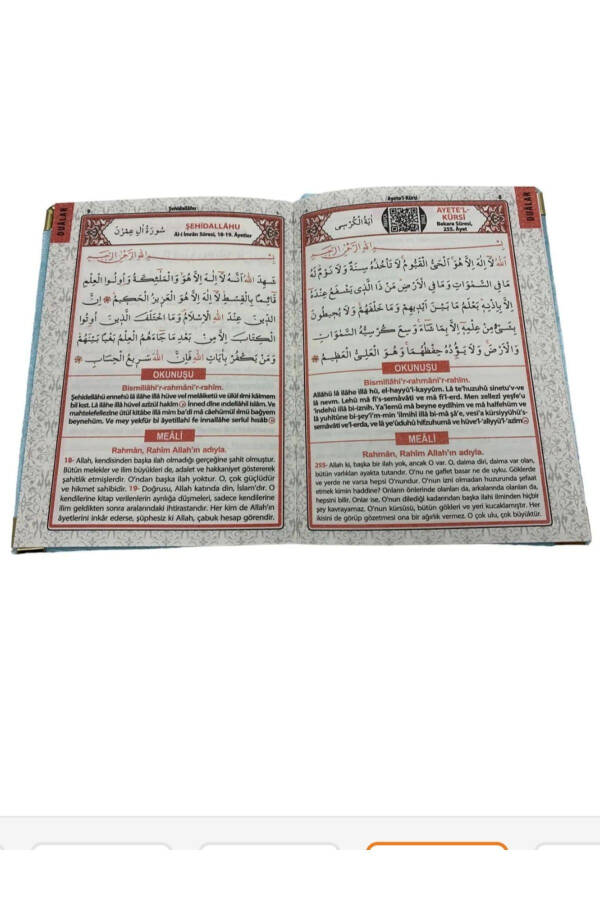 DUÂLAR
Ayete'l-Kürsî
AYETE'L-
KÜRSÎ
Bakara Sûresi,
255. Âyet
اٰيَةُ الْكُرْسِى
اَللّٰهُ لَٓا اِلٰهَ اِلَّا هُوَۚ اَلْحَىُّ الْقَيُّومُۚ لَا تَأْخُذُهُ سِنَةٌ وَلَا نَوْمٌۜ لَهُ
مَا فِى السَّمٰوَاتِ وَمَا فِى الْاَرْضِۜ مَنْ ذَا الَّذِى يَشْفَعُ عِنْدَهُٓ
اِلَّا بِاِذْنِهِۜ يَعْلَمُ مَا بَيْنَ اَيْدِيهِمْ وَمَا خَلْفَهُمْۚ وَلَا يُحِيطُونَ
بِشَىْءٍ مِنْ عِلْمِهِٓ اِلَّا بِمَا شَٓاءَۚ وَسِعَ كُرْسِيُّهُ السَّمٰوَاتِ
وَالْاَرْضَۚ وَلَا يَؤُدُهُ حِفْظُهُمَاۚ وَهُوَ الْعَلِىُّ الْعَظِيمُ
OKUNUŞU
Bismillâhi'r-rahmâni'r-rahîm.
Allâhü lâ ilâhe illâ hû, el-hayyü'l-kayyûm. Lâ te'huzuhû sinetü'v-ve
lâ nevm. Lehû mâ fi's-semâvâti ve mâ fi'l-erd. Men zellezî yeşfe'u
'indehû illâ bi-iznih. Ya'lemü mâ beyne eydîhim ve mâ halfehüm ve
lâ yuhîtûne bi-şey'i'm-min 'ilmihî illâ bi-mâ şâ'e, vesi'a kürsiyyühü's-
semâvâti ve'l-erda, ve lâ ye'ûduhû hıfzuhumâ ve hüve'l-'aliyyü'l-'azîm
MEÂLİ
Rahmân, Rahîm Allah'ın adıyla.
255- Allah ki, başka bir ilah yok, ancak O var. O, daima diri, daima var olan,
bütün varlıkları ayakta tutandır. O'nu ne gaflet basar ne de uyku. Göklerde
ve yerde ne varsa hepsi O'nundur. O'nun izni olmadan huzurunda şefaat
etmek kimin haddine? Onların önlerinde olanları da, arkalarında olanları da,
hepsini bilir. Onlar ise, O'nun dilediği kadarından başka ilahi ilminden hiçbir
şey kavrayamaz. O'nun kürsüsü, bütün gökleri ve yeri kucaklamıştır. Her
ikisini de görüp gözetmesi ona bir ağırlık vermez. O çok ulu, çok büyüktür.
DUÂLAR
9
Şehidallâhu
ŞEHİDALLÂHU
Âl-i İmrân Sûresi, 18-19. Âyetler
سُورَةُ اٰلِ عِمْرٰنَ
شَهِدَ اللّٰهُ اَنَّهُ لَٓا اِلٰهَ اِلَّا هُوَۙ وَالْمَلٰٓئِكَةُ وَاُولُوا الْعِلْمِ
قَٓائِمًا بِالْقِسْطِۜ لَٓا اِلٰهَ اِلَّا هُوَ الْعَزِيزُ الْحَكِيمُ اِنَّ
الدِّينَ عِنْدَ اللّٰهِ الْاِسْلَامُ وَمَا اخْتَلَفَ الَّذِينَ اُوتُوا
الْكِتَابَ اِلَّا مِنْ بَعْدِ مَا جَٓاءَهُمُ الْعِلْمُ بَغْيًا بَيْنَهُمْۜ
وَمَنْ يَكْفُرْ بِاٰيَاتِ اللّٰهِ فَاِنَّ اللّٰهَ سَرِيعُ الْحِسَابِ
OKUNUŞU
Bismillâhi'r-rahmâni'r-rahîm.
Şehidellâhü ennehû lâ ilâhe illâ hüve vel melâiketü ve ülül ılmi kâimem
bil kıst. Lâ ilâhe illâ hüvel azîzül hakîm İnned dîne ındellâhil islâm. Ve
mahtelefellezîne ûtül kitâbe illâ mim ba'di mâ câehümül ılmü bağyem
beynehüm. Ve mey yekfür bi âyetillahi fe innallâhe serîul hısâb
MEÂLİ
Rahmân, Rahîm Allah'ın adıyla.
18- Allah, kendisinden başka ilah olmadığı gerçeğine şahit olmuştur.
Bütün melekler ve ilim büyükleri de, adalet ve hakkaniyet göstererek
şahitlik etmişlerdir. O'ndan başka ilah yoktur. O, çok güçlüdür
ve hikmet sahibidir. 19- Doğrusu, Allah katında din, İslam'dır. O
kendilerine kitap verilenlerin ayrılığa düşmeleri, sadece kendilerine
ilim geldikten sonra aralarındaki ihtirastandır. Her kim de Allah'ın
âyetlerini inkâr ederse, şüphesiz ki Allah, çabuk hesap görendir.